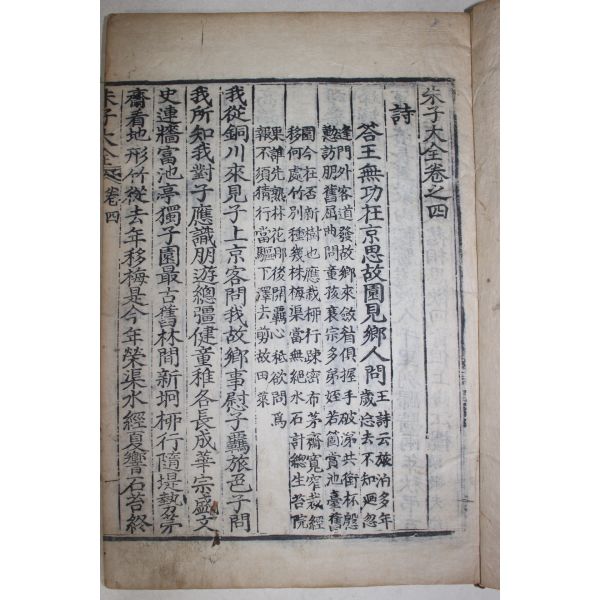 朱子大全卷之四
詩
答王無功在京思故園見鄉人問
王詩云旅泊多年
歲忘去不知廻忽
逢門外客道發故鄉來斂眉俱握手破涕共銜杯慇
懃訪朋舊屈曲問童孩衰宗多弟姪若箇賞池臺舊
園今在否新樹也應栽柳行疎密布茅齋寬窄裁經
移何處竹別種幾株梅渠當無絕水石計總生苔院
果誰先熟林花那後開羇心秪欲問爲
報不須猜行當驅下澤去剪故田萊
我從銅川來見子上京客問我故鄉事慰子羇旅色子問
我所知我對子應識朋遊總彊健童稚各長成華宗盛文
史連牆富池亭獨子園最古舊林間新坰柳行隨堤勢茅
齋看地形竹從去年移梅是今年榮渠水經夏響石苔終
朱子大全 卷四